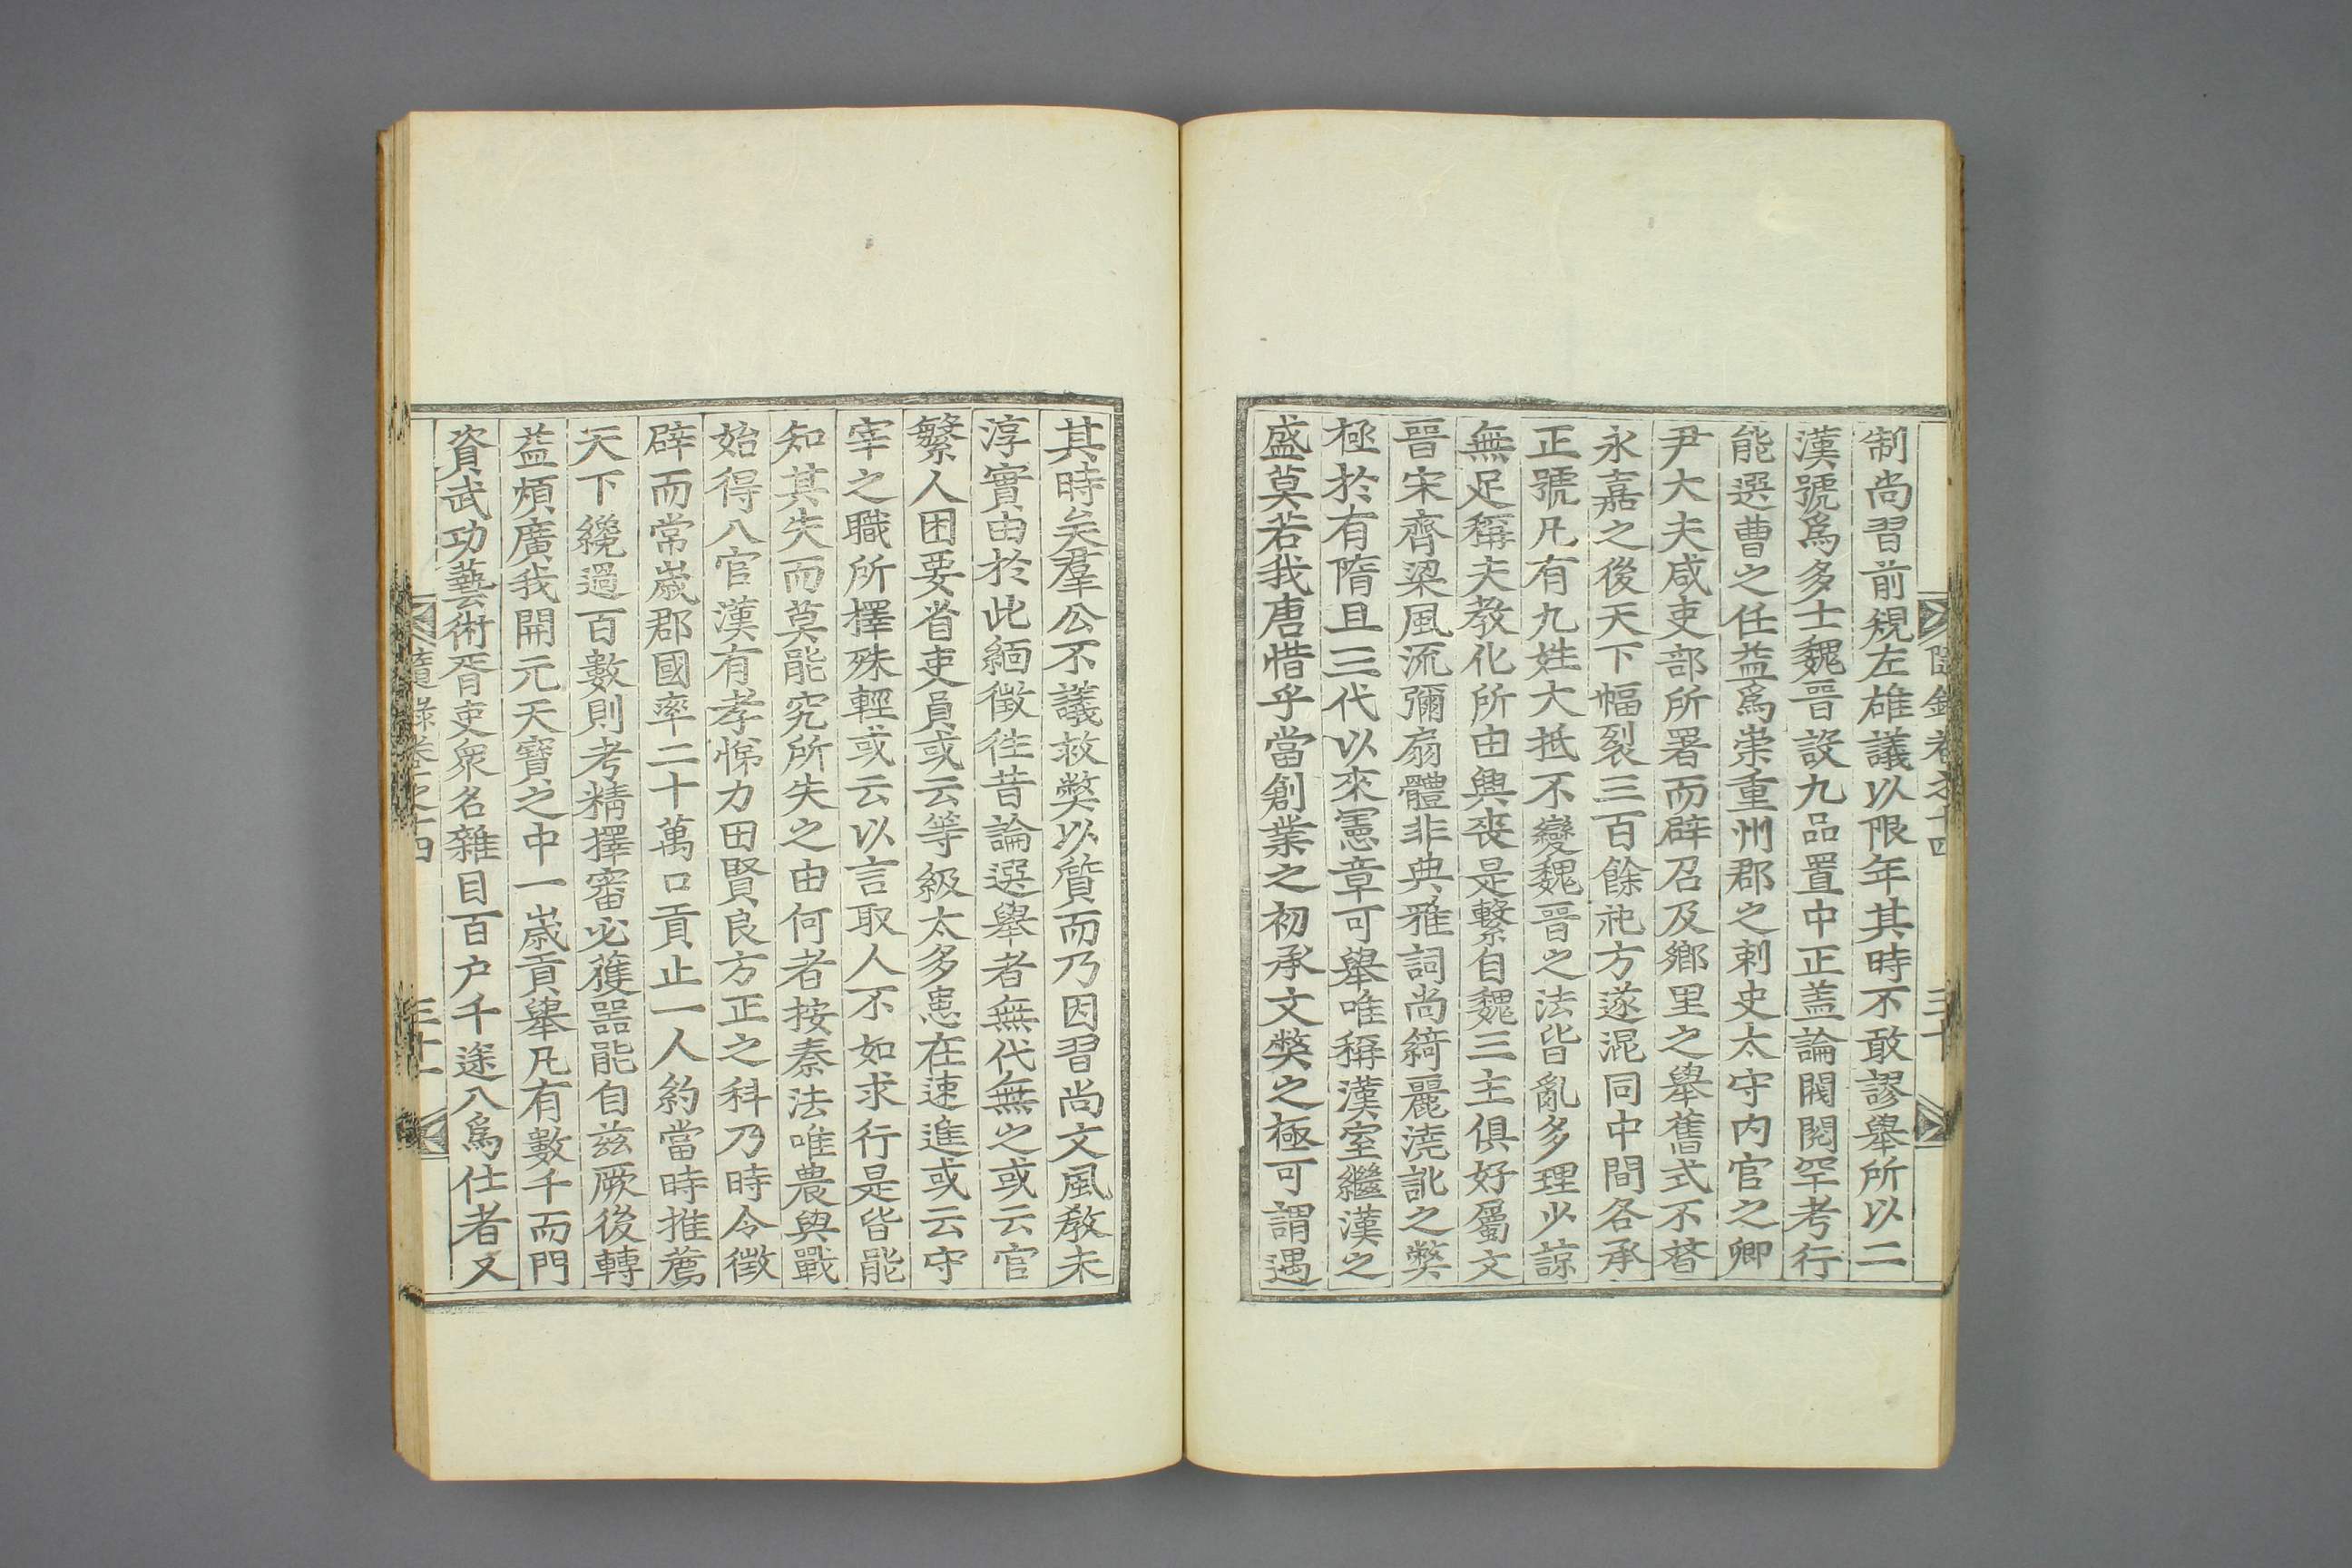 制尚習前規左雄議以限年其時不敢謬擧所以二
漢號爲多士魏晉設九品置中正盖論閥閱罕考行
能選曹之任益爲崇重州郡之刺史太守内官之卿
尹大夫咸吏部所署而辟召及鄕里之擧舊式不替
永嘉之後天下幅裂三百餘祀方遂混同中間各承
正號凡有九姓大抵不變魏晉之法皆亂多理少諒
無足稱夫教化所由興喪是繫自魏三主俱好屬文
晉宋齊梁風流彌扇體非典雅詞尚綺麗澆訛之獘
極於有隋且三代以來憲章可擧唯稱漢室繼漢之
盛莫若我唐惜乎當創業之初承文獘之極可謂遇
隨錄卷之十四 三十
其時矣羣公不議救獘以質而乃因習尚文風敎未
淳實由於此緬徵往昔論選擧者無代無之或云官
繁人困要省吏員或云等級太多患在速進或云守
宰之職所擇殊輕或云以言取人不如求行是皆能
知其失而莫能究所失之由何者按秦法唯農與戰
始得入官漢有孝悌力田賢良方正之科乃時令徵
辟而常歲郡國率二十萬口貢止一人約當時推薦
天下纔過百數則考精擇審必獲器能自兹厥後轉
益煩廣我開元天寶之中一歲貢擧凡有數千而門
資武功藝術胥吏衆名雜目百戶千途入爲仕者又
隨錄卷之十四 三十一